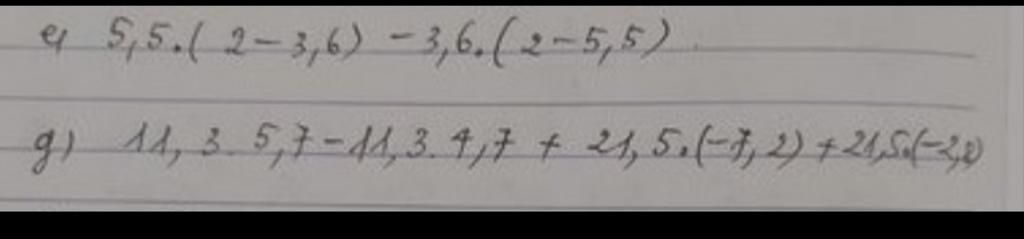 e) 5,5.( 2 - 3,6) - 3,6.( 2 - 5,5)
g) 11, 3. 5,7 - 11, 3. 4,7 + 21, 5.(-7, 2) + 21,5.(-2,8)